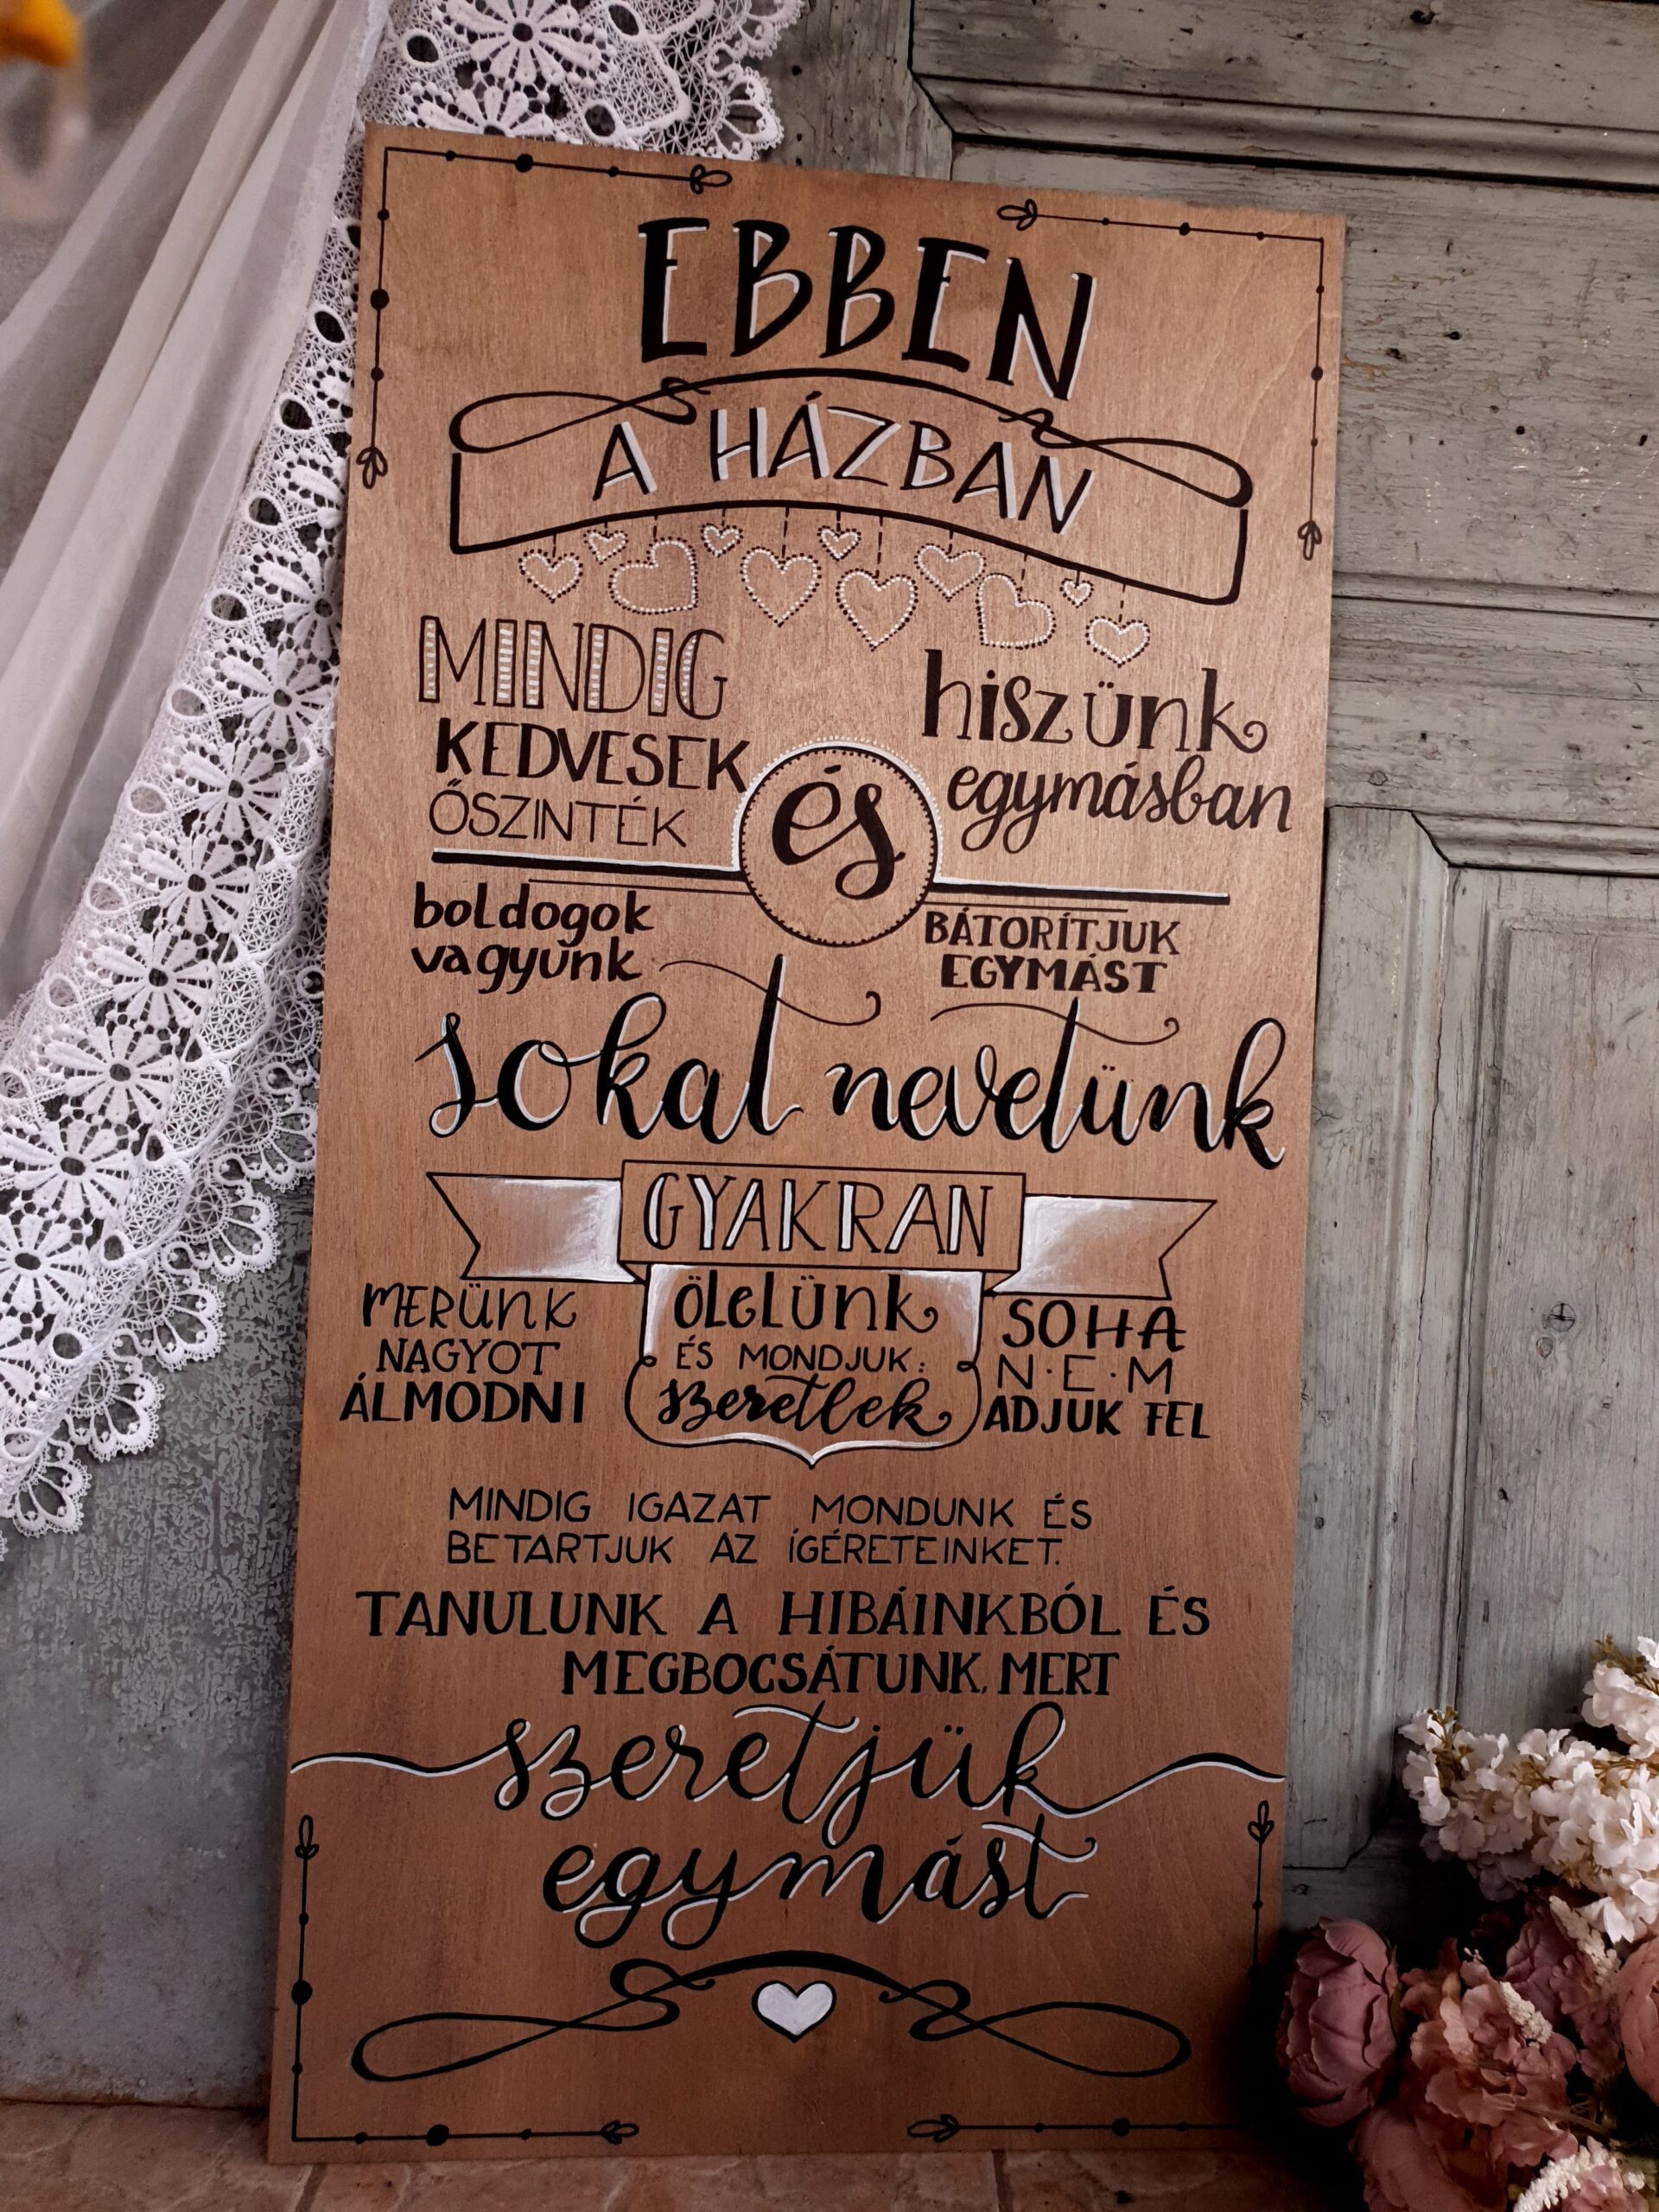 EBBEN
A HÁZBAN
MINDIG
KEDVESEK
ŐSZINTÉK
és
hiszünk
egymásban
boldogok
vagyunk
BÁTORÍTJUK
EGYMÁST
sokat nevetünk
GYAKRAN
ÖLELÜNK
ÉS MONDJUK:
szeretlek
MERÜNK
NAGYOT
ÁLMODNI
SOHA
N·E·M
ADJUK FEL
MINDIG IGAZAT MONDUNK ÉS
BETARTJUK AZ ÍGÉRETEINKET.
TANULUNK A HIBÁINKBÓL ÉS
MEGBOCSÁTUNK, MERT
szeretjük
egymást